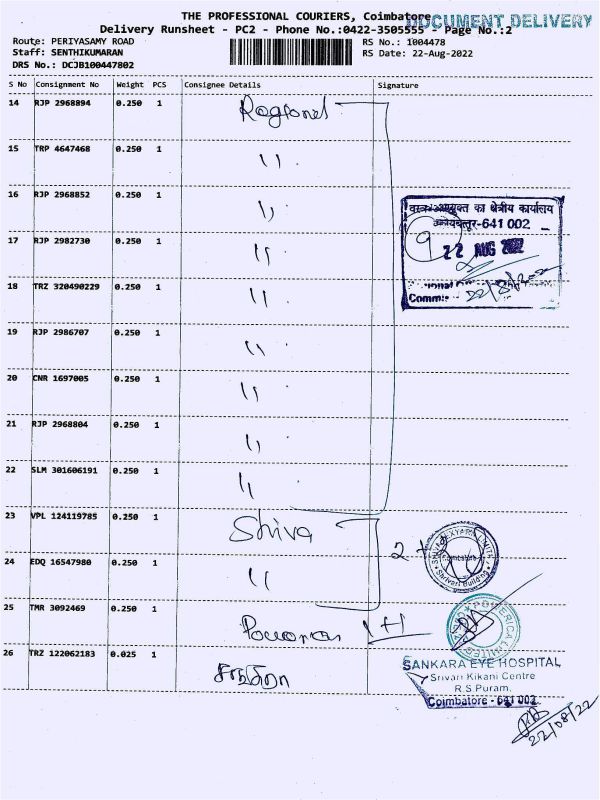 THE PROFESSIONAL COURIERS, Coimbatore
DOCUMENT DELIVERY
Delivery Runsheet - PC2 - Phone No.:0422-3505555 - Page No.:2
Route: PERIYASAMY ROAD
RS No.: 1004478
Staff: SENTHIKUMARAN
RS Date: 22-Aug-2022
DRS No.: DCJB100447802
S No Consignment No Weight PCS Consignee Details Signature
14 RJP 2968894 0.250 1
15 TRP 4647468 0.250 1 11
16 RJP 2968852 0.250 1 11
17 RJP 2982730 0.250 1 11
18 TRZ 320490229 0.250 1 11
19 RJP 2986707 0.250 1 11
20 CNR 1697005 0.250 1 11
21 RJP 2968804 0.250 1 11
22 SLM 301606191 0.250 1 11
का क्षेत्रीय कार्यालय
-641 002
9
22 AUG 2022
22/8/2022
23 VPL 124119785 0.250 1 Shiva
2
24 EDQ 16547980 0.250 1 11
Shrivari Building
25 TMR 3092469 0.250 1
26 TRZ 122062183 0.025 1
SANKARA EYE HOSPITAL
Srivari Kikani Centre
R.S.Puram,
Coimbatore - 641 002
22/08/22